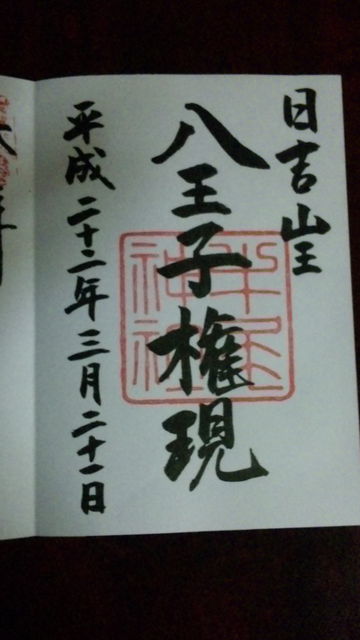 日吉山王
八王子権現
平成二十二年三月二十一日